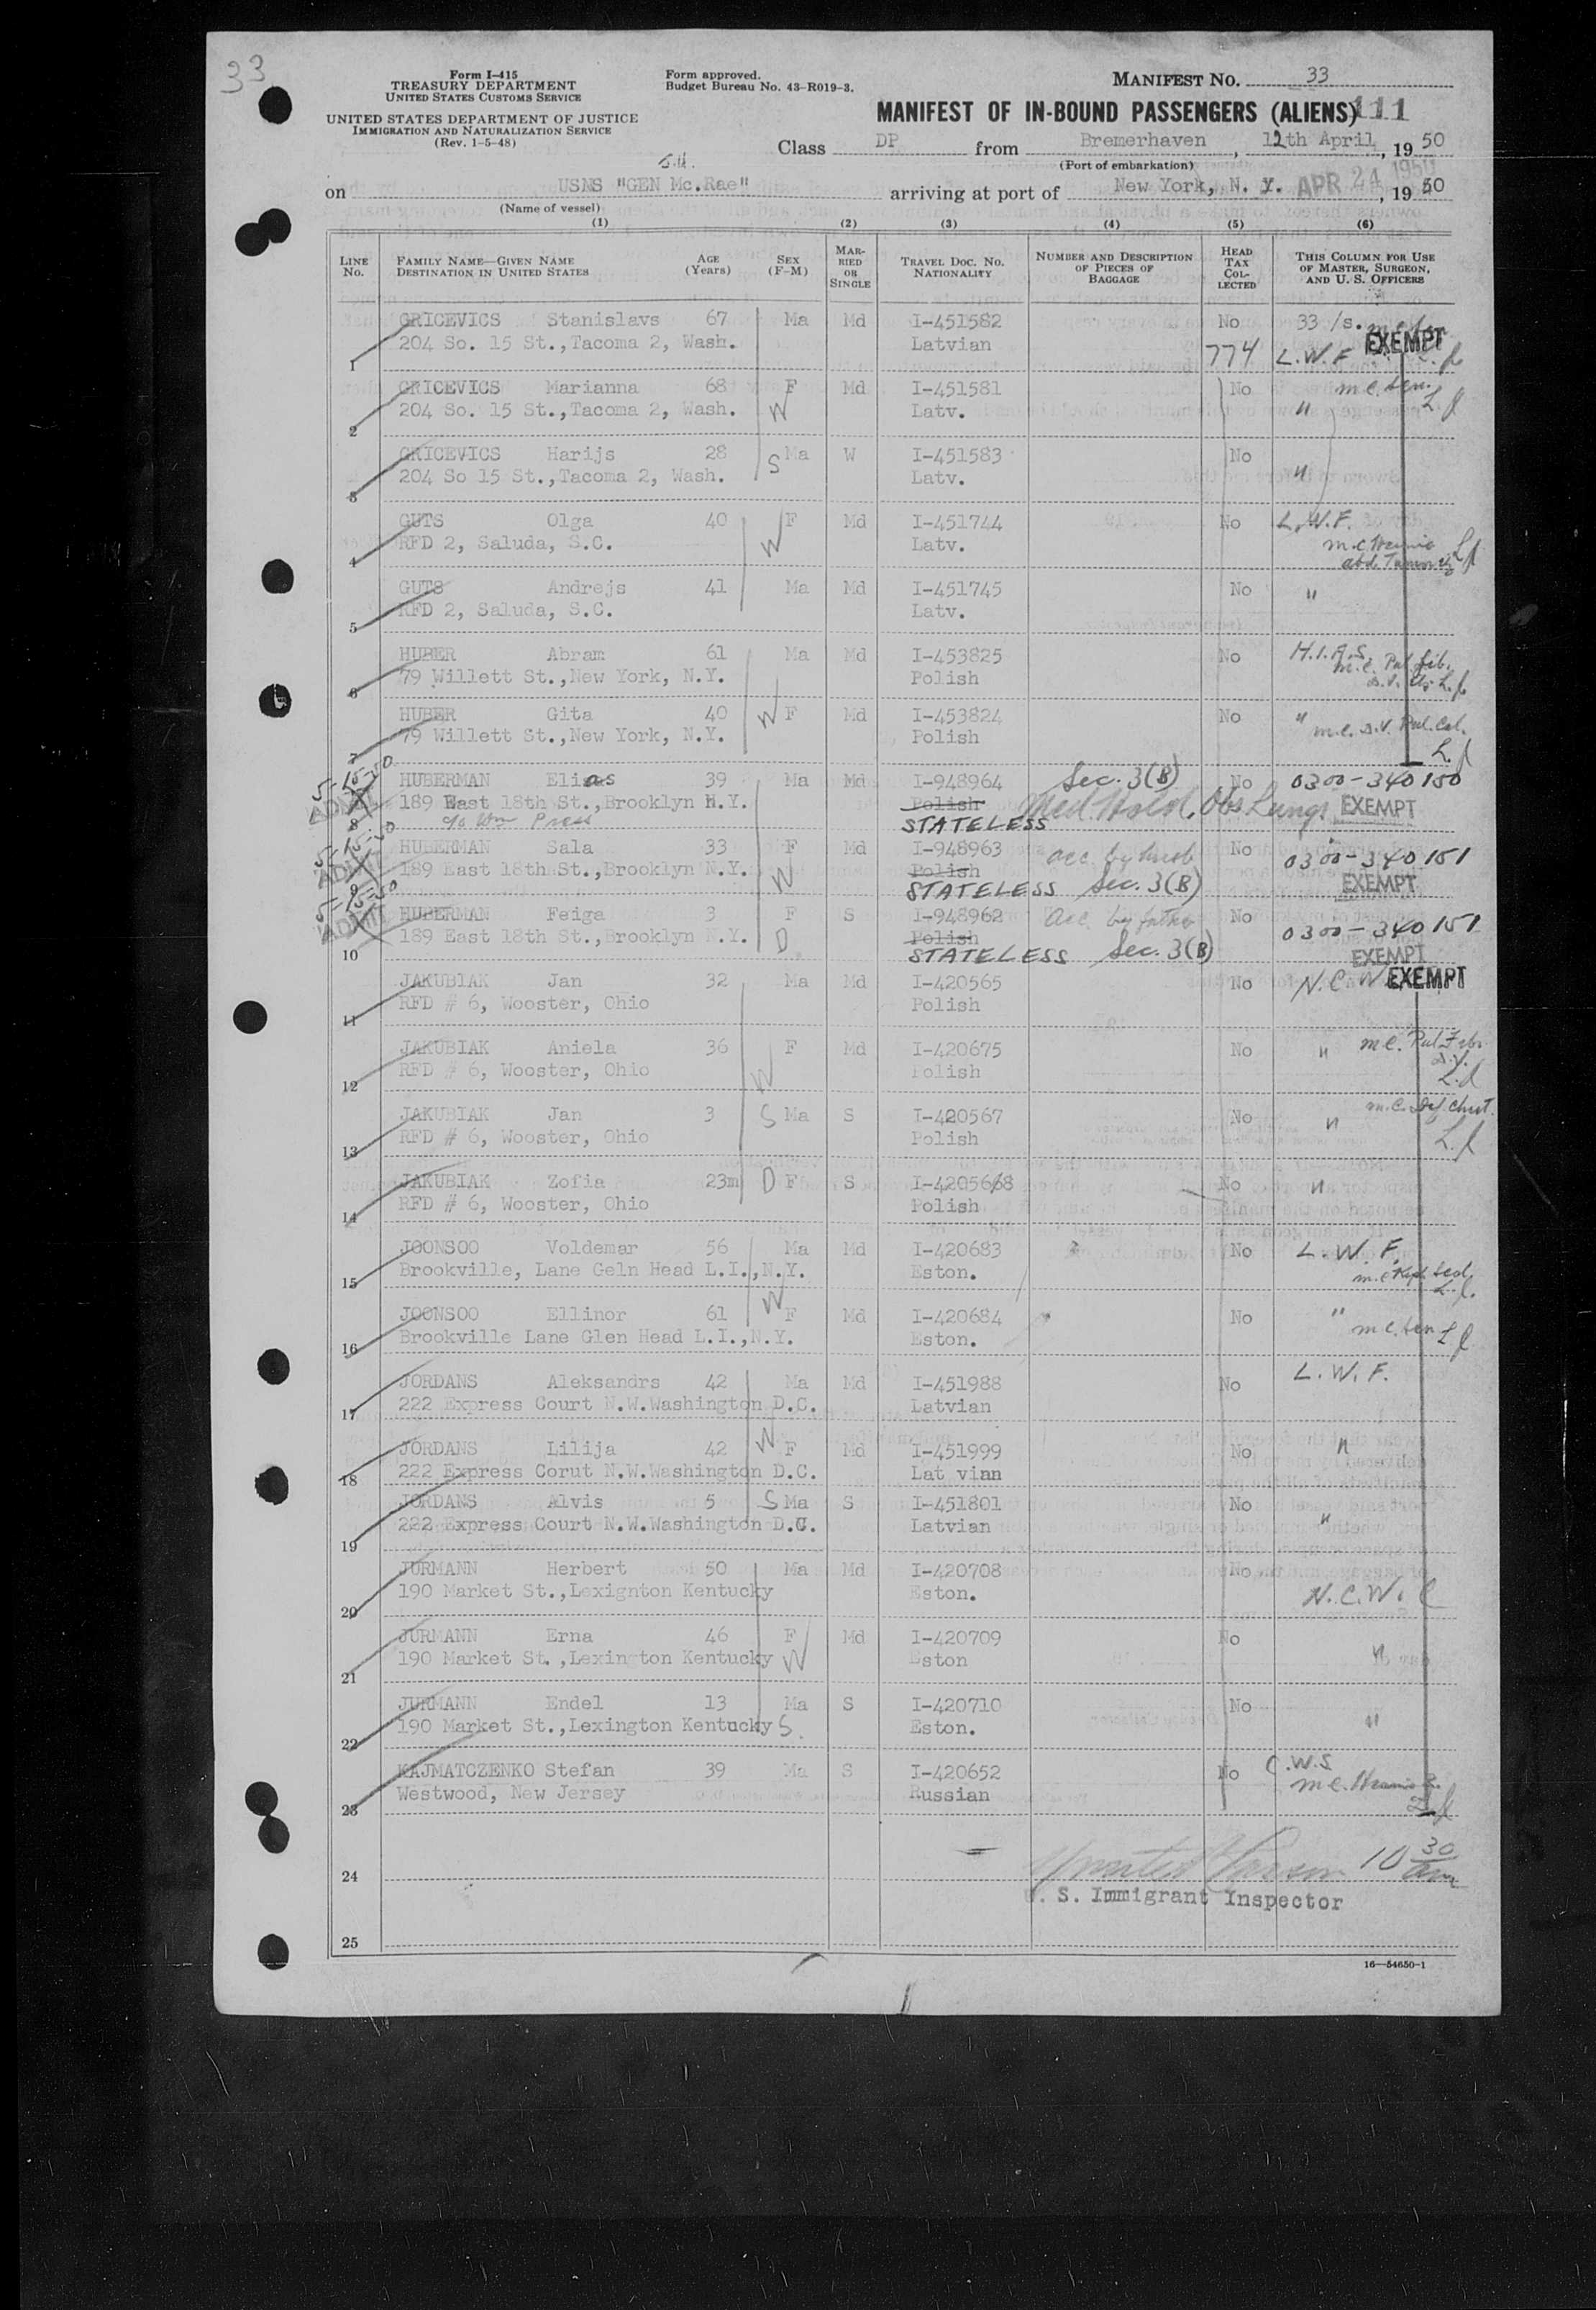 33
Form I-415
TREASURY DEPARTMENT
UNITED STATES CUSTOMS SERVICE
UNITED STATES DEPARTMENT OF JUSTICE
IMMIGRATION AND NATURALIZATION SERVICE
(Rev. 1-5-48)
Form approved.
Budget Bureau No. 43-R019-3.
MANIFEST No. 33
MANIFEST OF IN-BOUND PASSENGERS (ALIENS) 111
Class DP from Bremerhaven, 12th April, 1950
(Port of embarkation)
on USNS "GEN Mc.Rae" arriving at port of New York, N. Y. APR 24 1950, 1950
(Name of vessel)
(1) (2) (3) (4) (5) (6)
LINE No.
FAMILY NAME—GIVEN NAME DESTINATION IN UNITED STATES
AGE (Years)
SEX (F-M)
MARRIED OR SINGLE
TRAVEL DOC. NO. NATIONALITY
NUMBER AND DESCRIPTION OF PIECES OF BAGGAGE
HEAD TAX COLLECTED
THIS COLUMN FOR USE OF MASTER, SURGEON, AND U. S. OFFICERS
GRICEVICS Stanislavs 67 Ma Md I-451582 No 33/s. EXEMPT
1 204 So. 15 St.,Tacoma 2, Wash. Latvian 774 L.W.F
GRICEVICS Marianna 68 F Md I-451581 No m.c. sen.
2 204 So. 15 St.,Tacoma 2, Wash. W Latv. "
GRICEVICS Harijs 28 S Ma W I-451583 No
3 204 So 15 St.,Tacoma 2, Wash. Latv. "
GUTS Olga 40 F Md I-451744 No L.W.F.
4 RFD 2, Saluda, S.C. W Latv. m.c. Hernia
GUTS Andrejs 41 Ma Md I-451745 No "
5 RFD 2, Saluda, S.C. Latv.
HUBER Abram 61 Ma Md I-453825 No H.I.A.S.
6 79 Willett St.,New York, N.Y. Polish m.c. Pul. fib.
HUBER Gita 40 W F Md I-453824 No "
7 79 Willett St.,New York, N.Y. Polish m.c. D.V. Pul. Cal.
5-15-50 HUBERMAN Elias 39 Ma Md I-948964 Sec. 3(B) No 0300-340150
ADMIT 189 East 18th St.,Brooklyn N.Y. Polish Med. Hold. Obs Lungs EXEMPT
8 c/o Wm Press STATELESS
5-15-50 HUBERMAN Sala 33 F Md I-948963 acc. by husb No 0300-340151
ADMIT 189 East 18th St.,Brooklyn N.Y. W Polish EXEMPT
9 STATELESS Sec. 3(B)
5-15-50 HUBERMAN Feiga 3 F S I-948962 acc. by father No 0300-340151
ADMIT 189 East 18th St.,Brooklyn N.Y. D Polish
10 STATELESS Sec. 3(B) EXEMPT
JAKUBIAK Jan 32 Ma Md I-420565 No N.C.W. EXEMPT
11 RFD # 6, Wooster, Ohio Polish
JAKUBIAK Aniela 36 F Md I-420675 No " m.c. Pul Fibr
12 RFD # 6, Wooster, Ohio W Polish
JAKUBIAK Jan 3 S Ma S I-420567 No " m.c. Def Chest.
13 RFD # 6, Wooster, Ohio Polish
JAKUBIAK Zofia 23m D F S I-420568 No "
14 RFD # 6, Wooster, Ohio Polish
JOONSOO Voldemar 56 Ma Md I-420683 No L.W.F.
15 Brookville, Lane Geln Head L.I.,N.Y. Eston.
JOONSOO Ellinor 61 W F Md I-420684 No "
16 Brookville Lane Glen Head L.I.,N.Y. Eston. m.c. sen
JORDANS Aleksandrs 42 Ma Md I-451988 No L.W.F.
17 222 Express Court N.W.Washington D.C. Latvian
JORDANS Lilija 42 W F Md I-451999 No "
18 222 Express Corut N.W.Washington D.C. Lat vian
JORDANS Alvis 5 S Ma S I-451801 No
19 222 Express Court N.W.Washington D.C. Latvian "
JURMANN Herbert 50 Ma Md I-420708 No
20 190 Market St.,Lexignton Kentucky Eston. N.C.W.C
JURMANN Erna 46 F Md I-420709 No
21 190 Market St.,Lexington Kentucky W Eston "
JURMANN Endel 13 Ma S I-420710 No
22 190 Market St.,Lexington Kentucky S. Eston. "
KAJMATCZENKO Stefan 39 Ma S I-420652 No C.W.S
23 Westwood, New Jersey Russian m.c. Hernia
24 10 30 am
U. S. Immigrant Inspector
25
16—54650-1